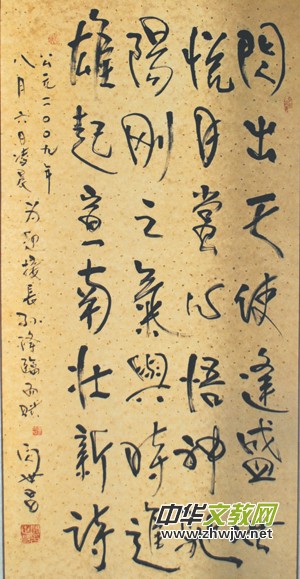 閃出天使逢盛世
悦目賞心悟神
陽剛之氣與時進
雄起南壮新詩
公元二〇〇九年
八月六日凌晨为迎接長孙降臨而賦
中华文教网
www.zhwjw.net